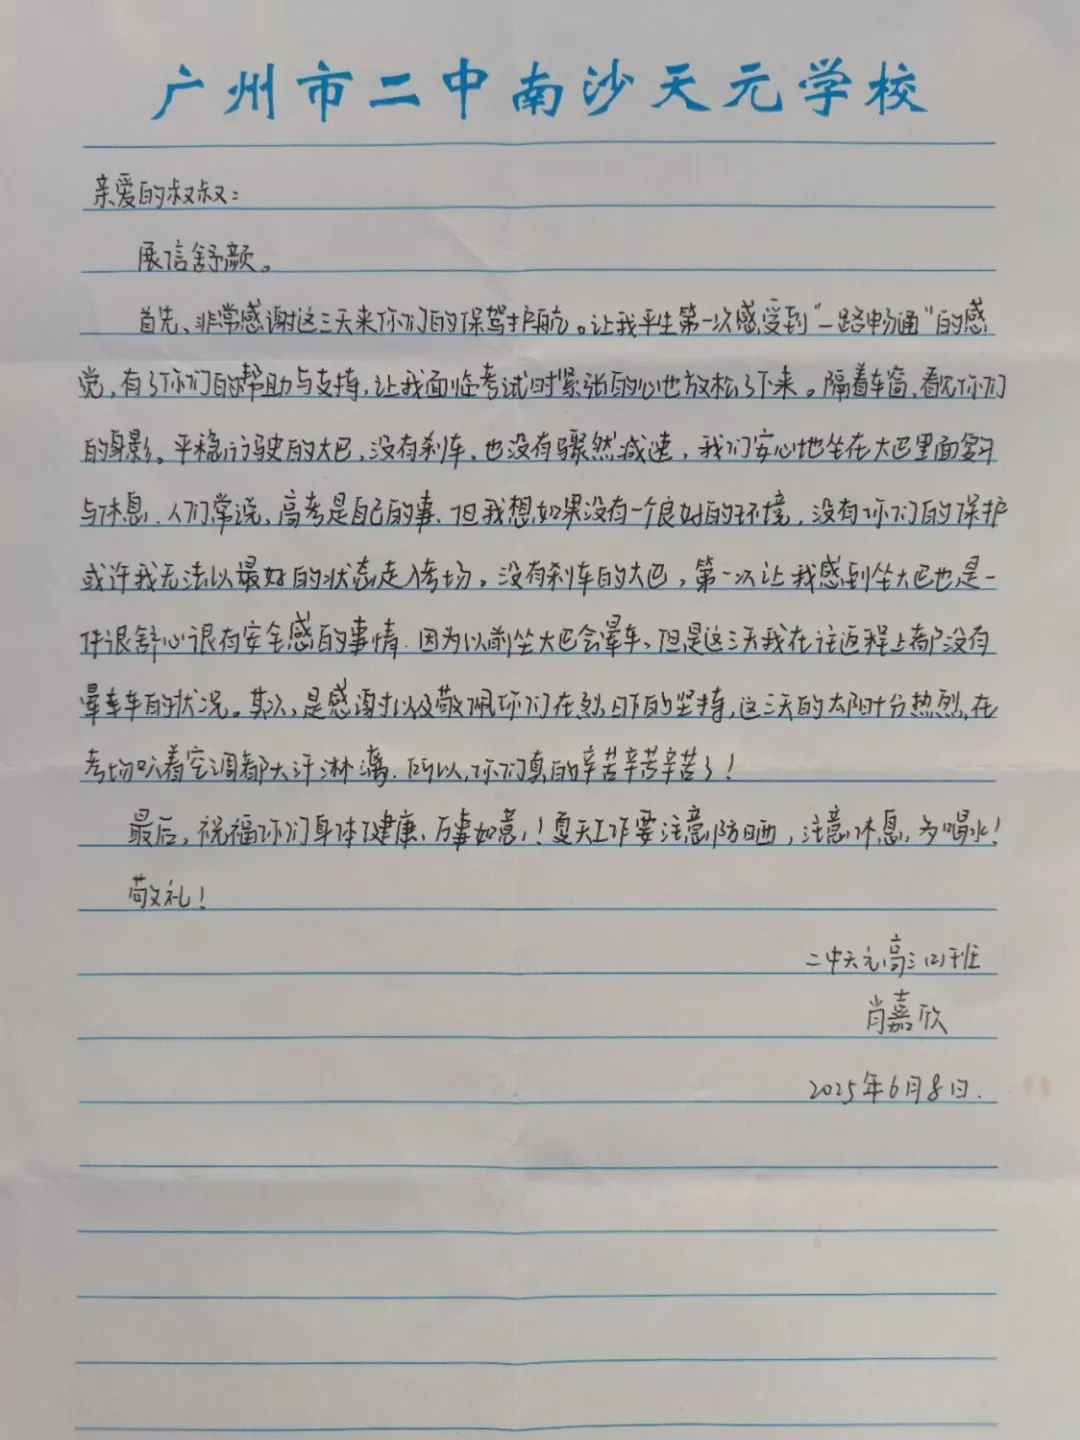 广州市二中南沙天元学校
亲爱的叔叔：
展信舒颜。
首先、非常感谢这三天来你们的保驾护航。让我平生第一次感受到“一路畅通”的感
觉，有了你们的帮助与支持，让我面临考试时紧张的心也放松了下来。隔着车窗、看见你们
的身影。平稳行驶的大巴，没有刹车、也没有骤然减速，我们安心地坐在大巴里面复习
与休息．人们常说、高考是自己的事．但我想如果没有一个良好的环境．没有你们的保护
或许我无法以最好的状态走入考场。没有刹车的大巴，第一次让我感到坐大巴也是一
件很舒心很有安全感的事情．因为以前坐大巴会晕车、但是这三天我在往返程上都没有
晕车车的状况。其次，是感谢以及敬佩你们在烈日下的坚持，这三天的太阳十分热烈，在
考场吹着空调都大汗淋漓．所以，你们真的辛苦辛苦辛苦了！
最后，祝福你们身体健康、万事如意！夏天工作要注意防晒，注意休息，多喝水！
敬礼！
二中天元高三(2)班
肖嘉欣
2025年6月8日．